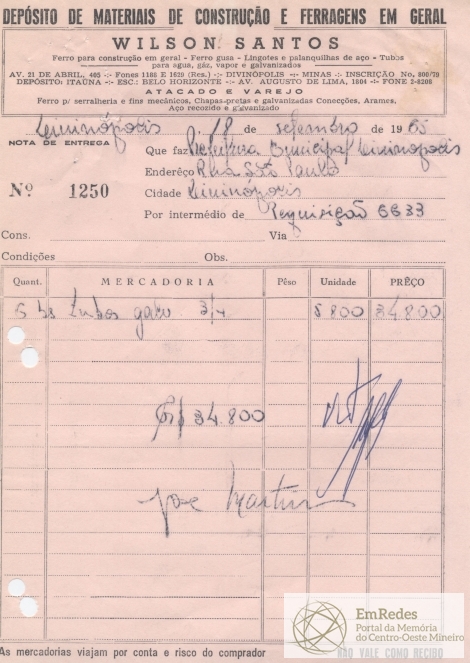 DEPÓSITO DE MATERIAIS DE CONSTRUÇÃO E FERRAGENS EM GERAL
WILSON SANTOS
Ferro para construção em geral - Ferro gusa - Lingotes e palanquilhas de aço - Tubos
para agua, gáz, vapor e galvanizados
AV. 21 DE ABRIL, 405 -:- Fones 1188 E 1629 (Res.) -:- DIVINÓPOLIS -:- MINAS -:- INSCRIÇÃO No. 800/79
DEPÓSITO: ITAÚNA -:- ESC.: BELO HORIZONTE -:- AV. AUGUSTO DE LIMA, 1804 -:- FONE 2-8208
ATACADO E VAREJO
Ferro p/ serralheria e fins mecânicos, Chapas-pretas e galvanizadas Conecções, Arames,
Aço rozido e galvanizado
Divinópolis, 18 de setembro de 1965
NOTA DE ENTREGA
Que faz Prefeitura Municipal Divinópolis
Endereço Rua São Paulo
Nº 1250
Cidade Divinópolis
Por intermédio de Requisição 6633
Cons. Via
Condições Obs.
Quant. MERCADORIA Pêso Unidade PRÊÇO
6 bs tubos galv 3/4 5 800 34.800
Cr$ 34.800
José Martins
EmRedes
Portal da Memória
do Centro-Oeste Mineiro
As mercadorias viajam por conta e risco do comprador NÃO VALE COMO RECIBO